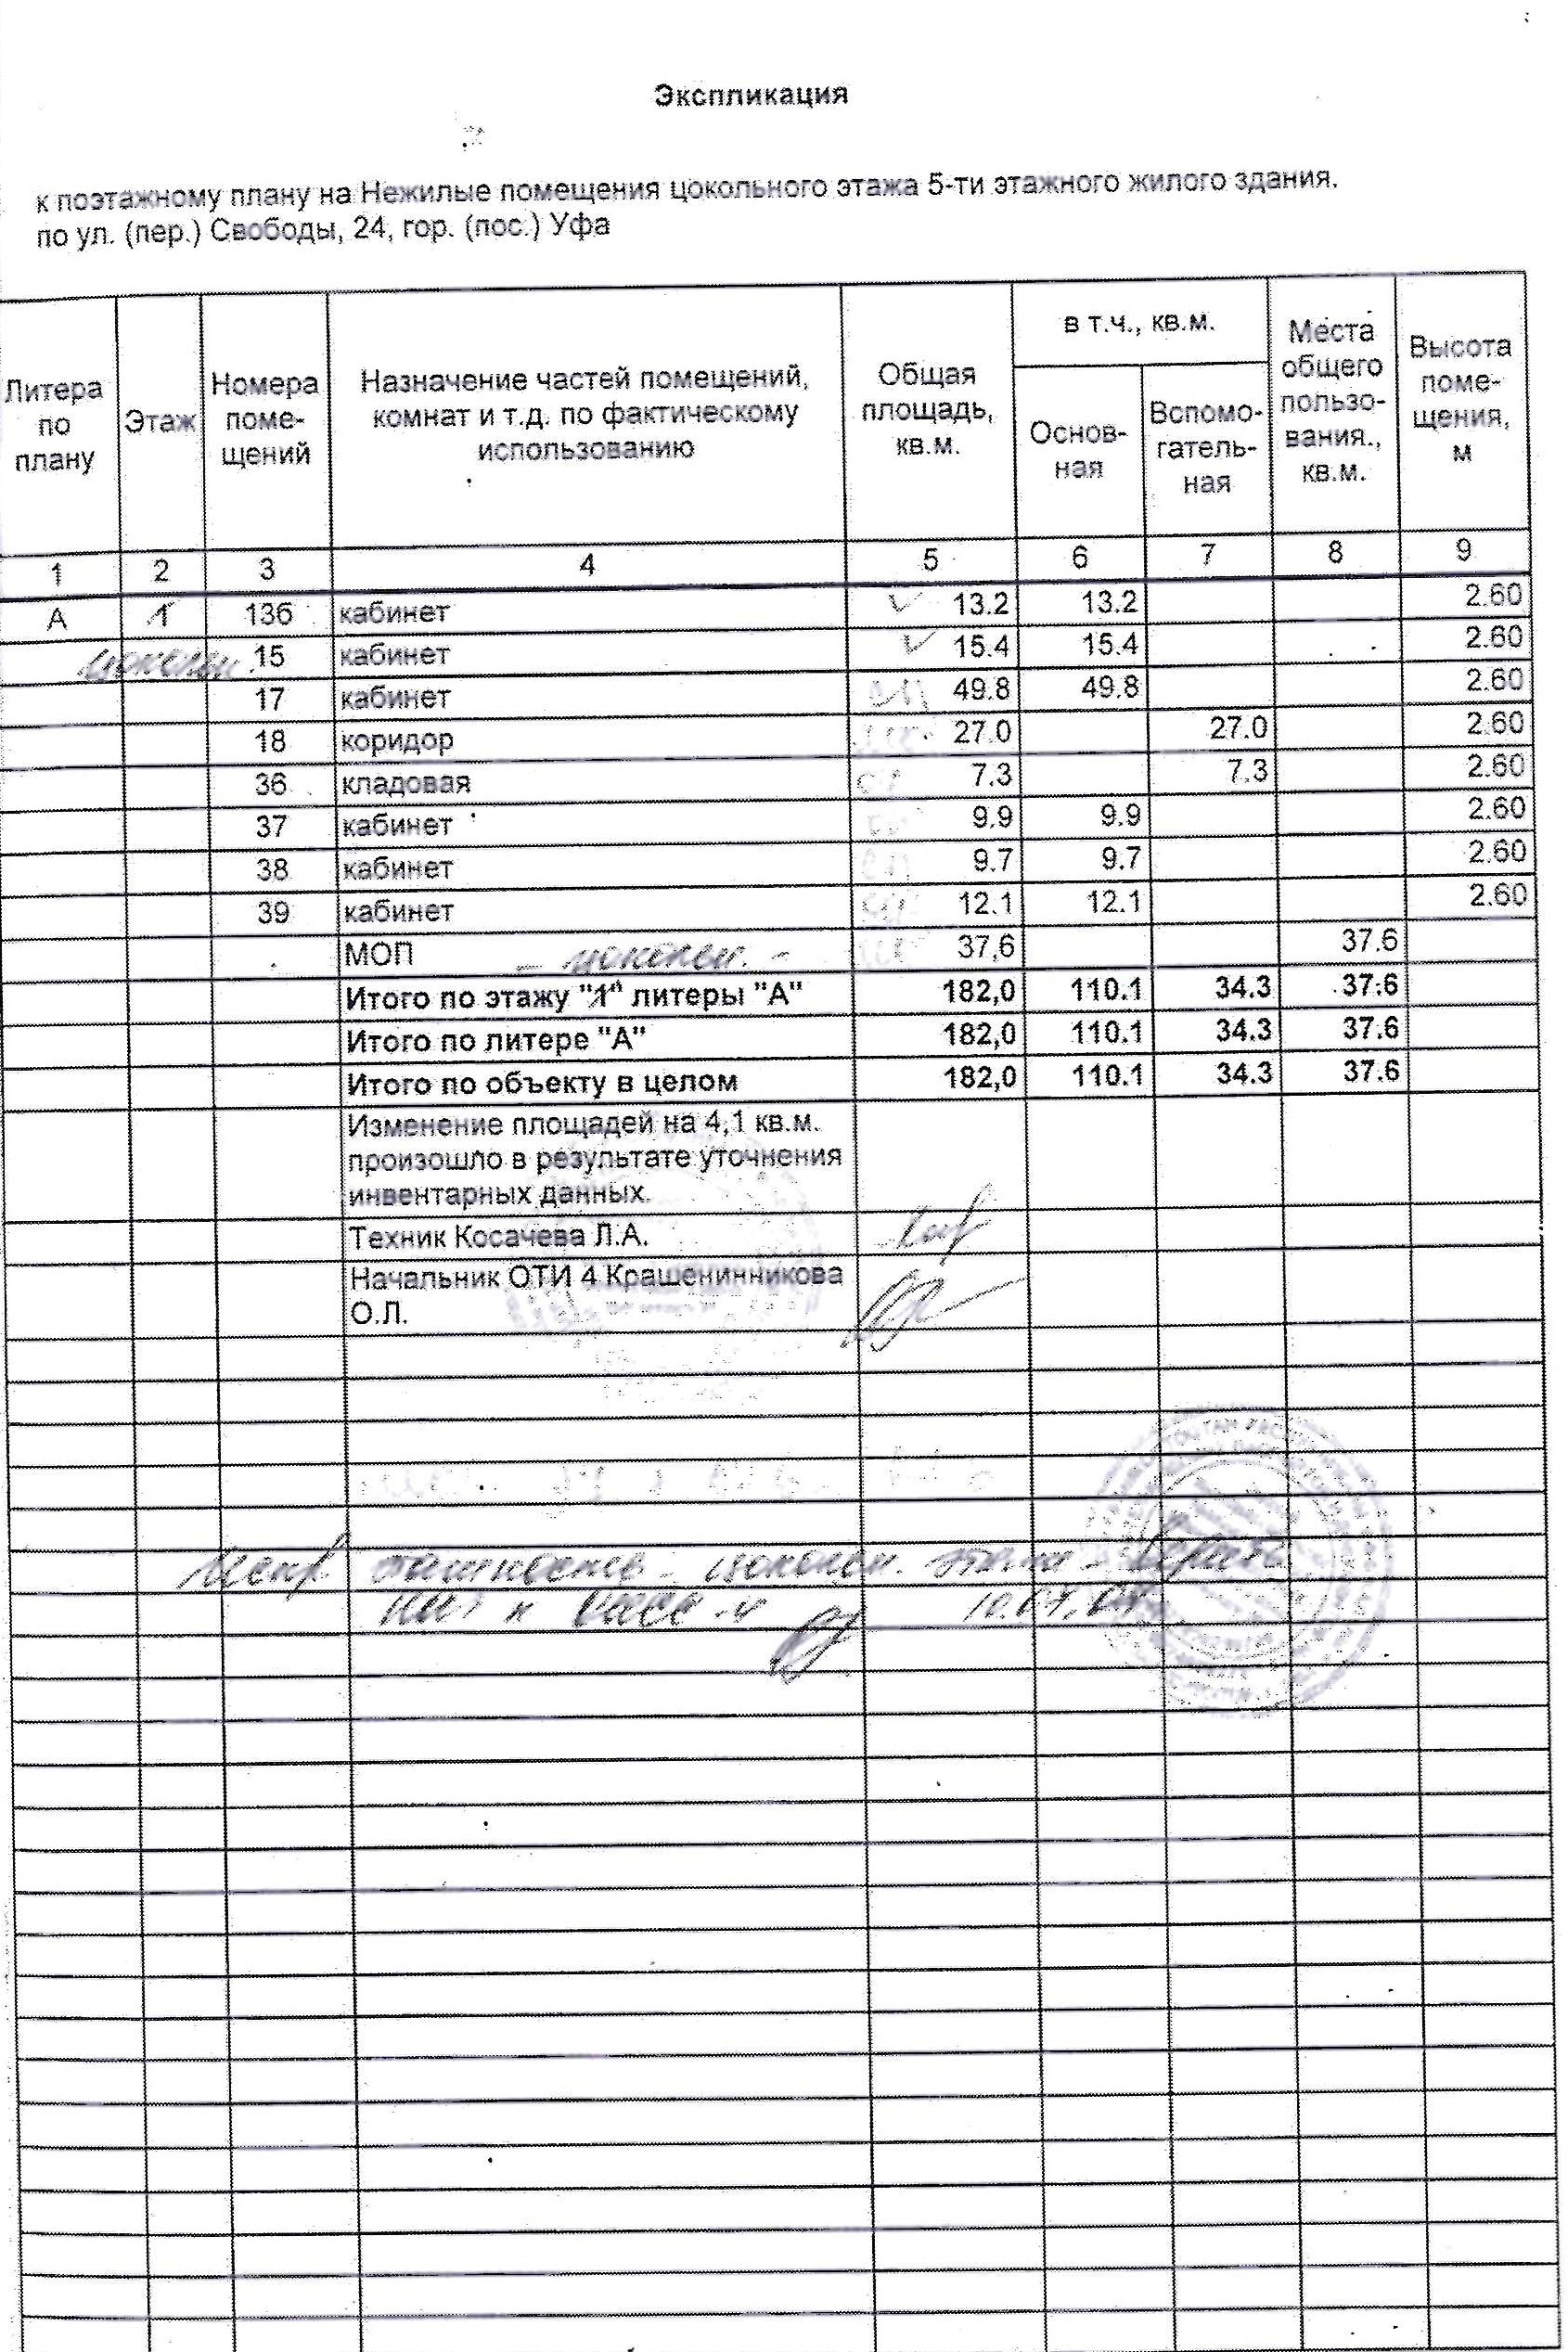 Экспликация
к поэтажному плану на Нежилые помещения цокольного этажа 5-ти этажного жилого здания.
по ул. (пер.) Свободы, 24, гор. (пос.) Уфа
Литера по плану
Этаж
Номера поме-щений
Назначение частей помещений, комнат и т.д. по фактическому использованию
Общая площадь, кв.м.
в т.ч., кв.м.
Основ-ная
Вспомо-гатель-ная
Места общего пользо-вания., кв.м.
Высота поме-щения, м
1 2 3 4 5 6 7 8 9
А 1 13б кабинет 13.2 13.2 2.60
цокольн. 15 кабинет 15.4 15.4 2.60
17 кабинет 49.8 49.8 2.60
18 коридор 27.0 27.0 2.60
36 кладовая 7.3 7.3 2.60
37 кабинет 9.9 9.9 2.60
38 кабинет 9.7 9.7 2.60
39 кабинет 12.1 12.1 2.60
МОП - цокольн. - 37,6 37.6
Итого по этажу "1" литеры "А" 182,0 110.1 34.3 37.6
Итого по литере "А" 182,0 110.1 34.3 37.6
Итого по объекту в целом 182,0 110.1 34.3 37.6
Изменение площадей на 4,1 кв.м.
произошло в результате уточнения
инвентарных данных.
Техник Косачева Л.А.
Начальник ОТИ 4 Крашенинникова
О.Л.
цокольн.